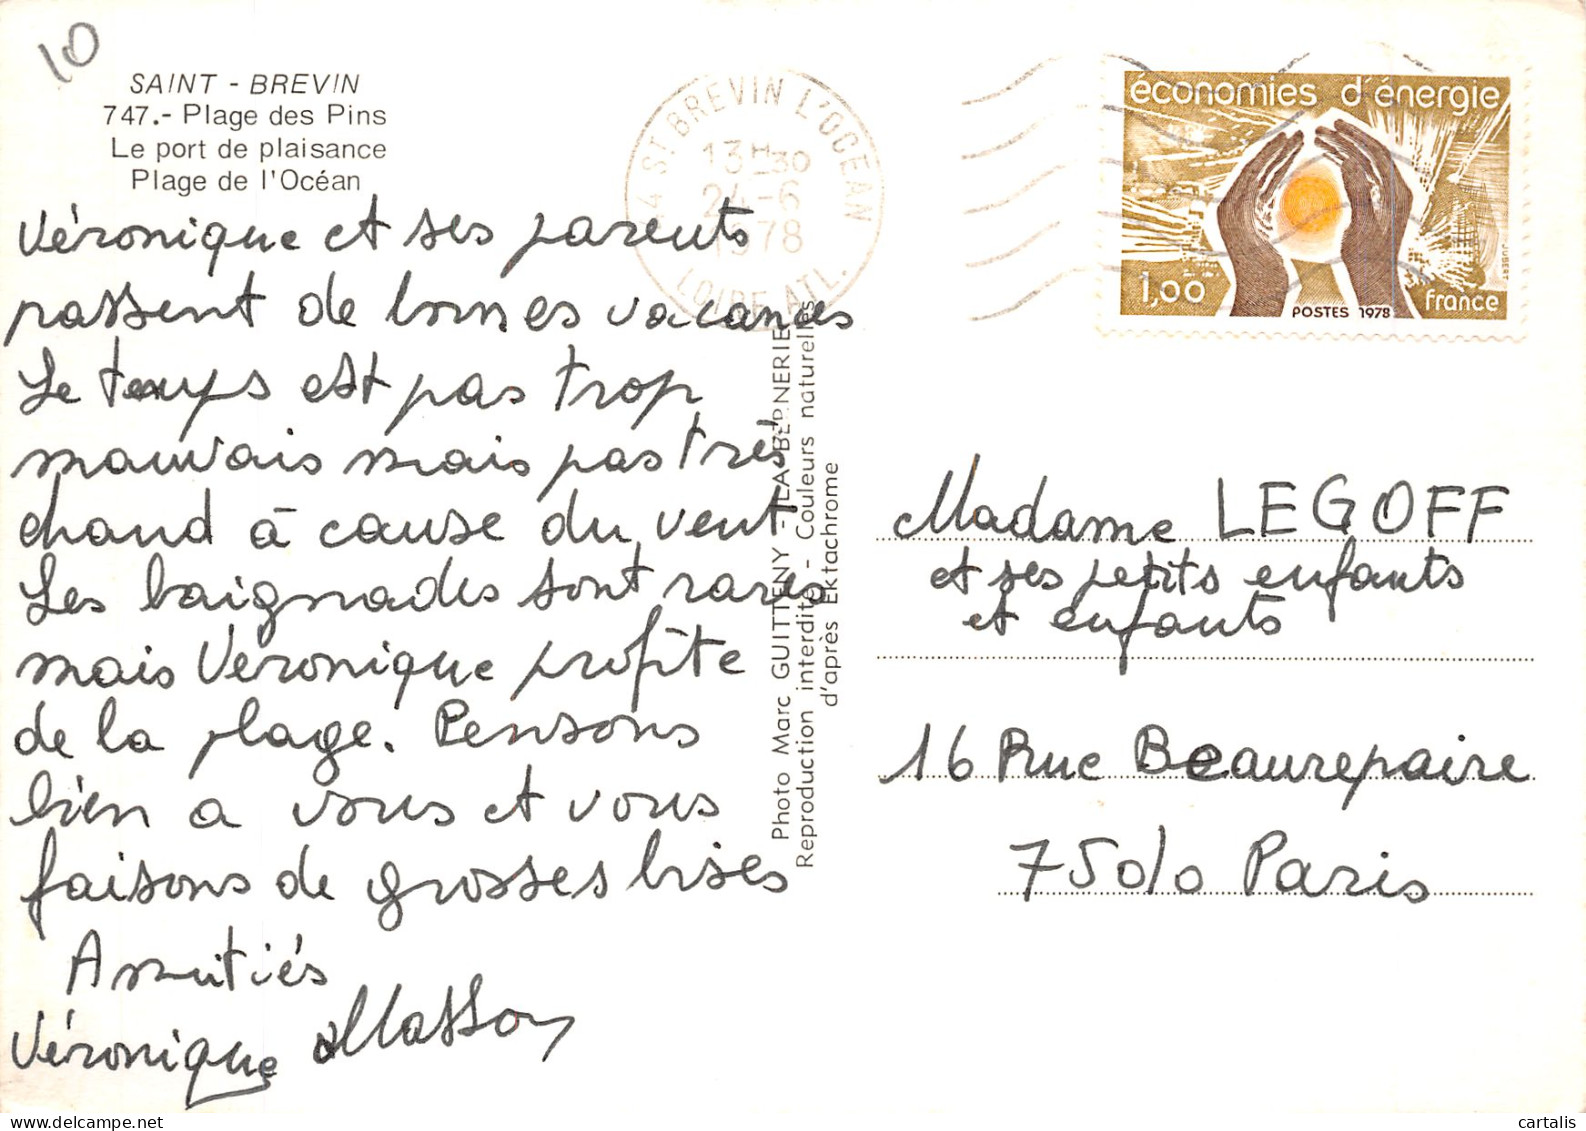 10
SAINT - BREVIN
747.- Plage des Pins
Le port de plaisance
Plage de l'Océan
Véronique et ses parents
passent de bonnes vacances
Le temps est pas trop
mauvais mais pas très
chaud à cause du vent
Les baignades sont rares
mais Véronique profite
de la plage. Pensons
bien a vous et vous
faisons de grosses bises
Amitiés
Véronique Masson
44 ST BREVIN L'OCEAN
13H30
24-6
1978
LOIRE ATL.
Photo Marc GUITTENY - LA BERNERIE
Reproduction interdite - Couleurs naturelles
d'après Ektachrome
économies d'énergie
1,00
POSTES 1978
france
JUBERT
Madame LEGOFF
et ses petits enfants
et enfants
16 Rue Beaurepaire
75010 Paris
cartalis